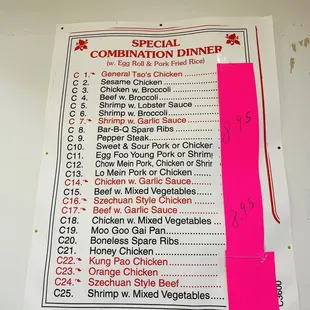 SPECIAL
COMBINATION DINNER
(w. Egg Roll & Pork Fried Rice)
C 1. General Tso's Chicken
C 2. Sesame Chicken
C 3. Chicken w. Broccoli
C 4. Beef w. Broccoli
C 5. Shrimp w. Lobster Sauce
C 6. Shrimp w. Broccoli
C 7. Shrimp w. Garlic Sauce
C 8. Bar-B-Q Spare Ribs
C 9. Pepper Steak
C10. Sweet & Sour Pork or Chicken
C11. Egg Foo Young Pork or Shrimp
C12. Chow Mein Pork, Chicken or Shrimp
C13. Lo Mein Pork or Chicken
C14. Chicken w. Garlic Sauce
C15. Beef w. Mixed Vegetables
C16. Szechuan Style Chicken
C17. Beef w. Garlic Sauce
C18. Chicken w. Mixed Vegetables
C19. Moo Goo Gai Pan
C20. Boneless Spare Ribs
C21. Honey Chicken
C22. Kung Pao Chicken
C23. Orange Chicken
C24. Szechuan Style Beef
C25. Shrimp w. Mixed Vegetables
8.95
8.95